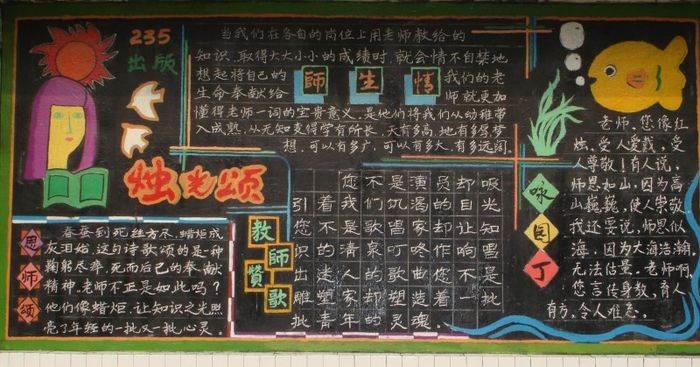 235
出版
烛光颂
恩师颂
春蚕到死丝方尽,蜡炬成
灰泪始,这句诗歌颂的是种
鞠躬尽瘁,死而后已的奉献
精神,老师不正是如此吗?
他们像蜡炬,让知识之光照
亮了年轻的一批又一批心灵。
当我们在各自的岗位上用老师教给的
知识,取得大大小小的成绩时,就会情不自禁地
想起将自己的 師生情 我们的老
生命奉献给 师就更加
懂得老师一词的宝贵意义,是他们将我们从幼稚带
入成熟,从无知变得学有所长,天有多高,地有多厚,梦
想,可以有多广,可以有多大,有多远阔.
教師贊歌
您不是演员却吸
引着我们饥渴的目光
您不是歌唱家却让知
识的清泉叮咚作响唱
出迷人的歌曲您不是
雕塑家却塑造着一批
批青年的灵魂.
咏园丁
老师,您像红
烛,受人爱戴,受
人尊敬!有人说,
师恩如山,因为高
山巍巍,使人崇敬
我还要说,师恩似
海,因为大海浩瀚,
无法估量.老师啊,
您言传身教,育人
有方,令人难忘.